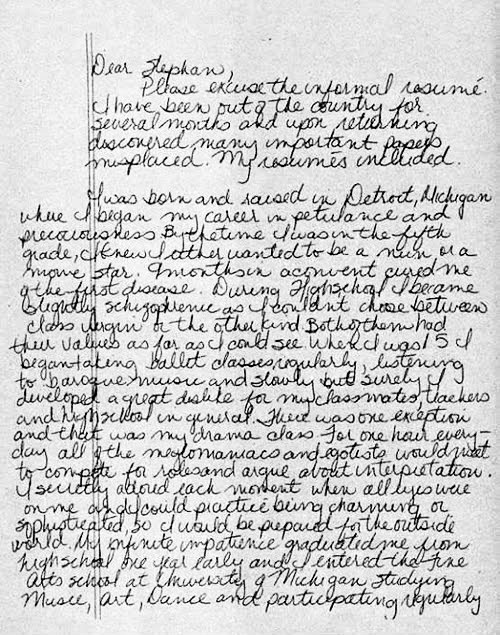 Dear Stephan,
Please excuse the informal resumé.
I have been out of the country for
several months and upon returning
discovered many important papers
misplaced. My resumés included.
I was born and raised in Detroit, Michigan
where I began my career in petulance and
precociousness By the time I was in the fifth
grade, I knew I either wanted to be a nun or a
movie star. 9 months in a convent cured me
of the first disease. During High school I became
slightly schizophrenic as I couldn't chose between
class virgin or the other kind Both of them had
their values as far as I could see When I was 15 I
began taking ballet classes regularly, listening
to baroque music and slowly but surely I
developed a great dislike for my classmates, teachers
and high school in general. There was one exception
and that was my drama class For one hour every-
day all of the meglomaniacs and egotists would meet
to compete for roles and argue about interpretation.
I secretly adored each moment when all eyes were
on me and I could practice being charming or
sophisticated, so I would be prepared for the outside
world My infinite impatience graduated me from
high school one year early and I entered the Fine
Arts school at University of Michigan studying
Music, Art, Dance and participating regularly